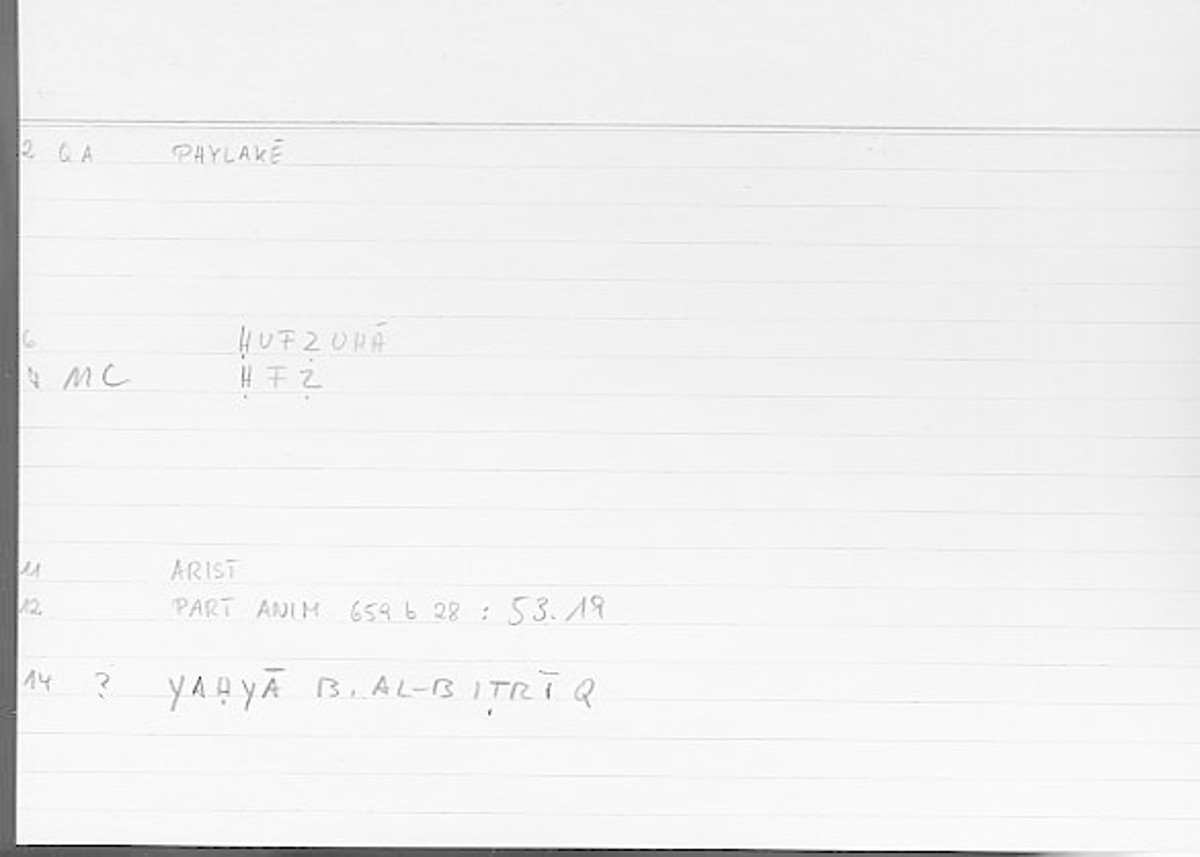 2 QA PHYLAKĒ
6 ḤUFẒUHĀ
7 MC ḤFẒ
11 ARIST
12 PART ANIM 659 b 28 : 53.19
14 ? YAḤYĀ B. AL-BIṬRĪQ